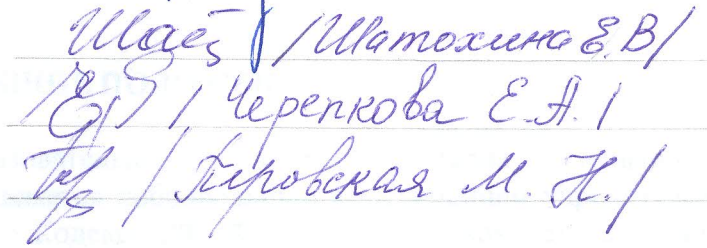 Шат /Шатохина Е.В/
/ Черепкова Е.А. /
/ Перовская М. Н. /